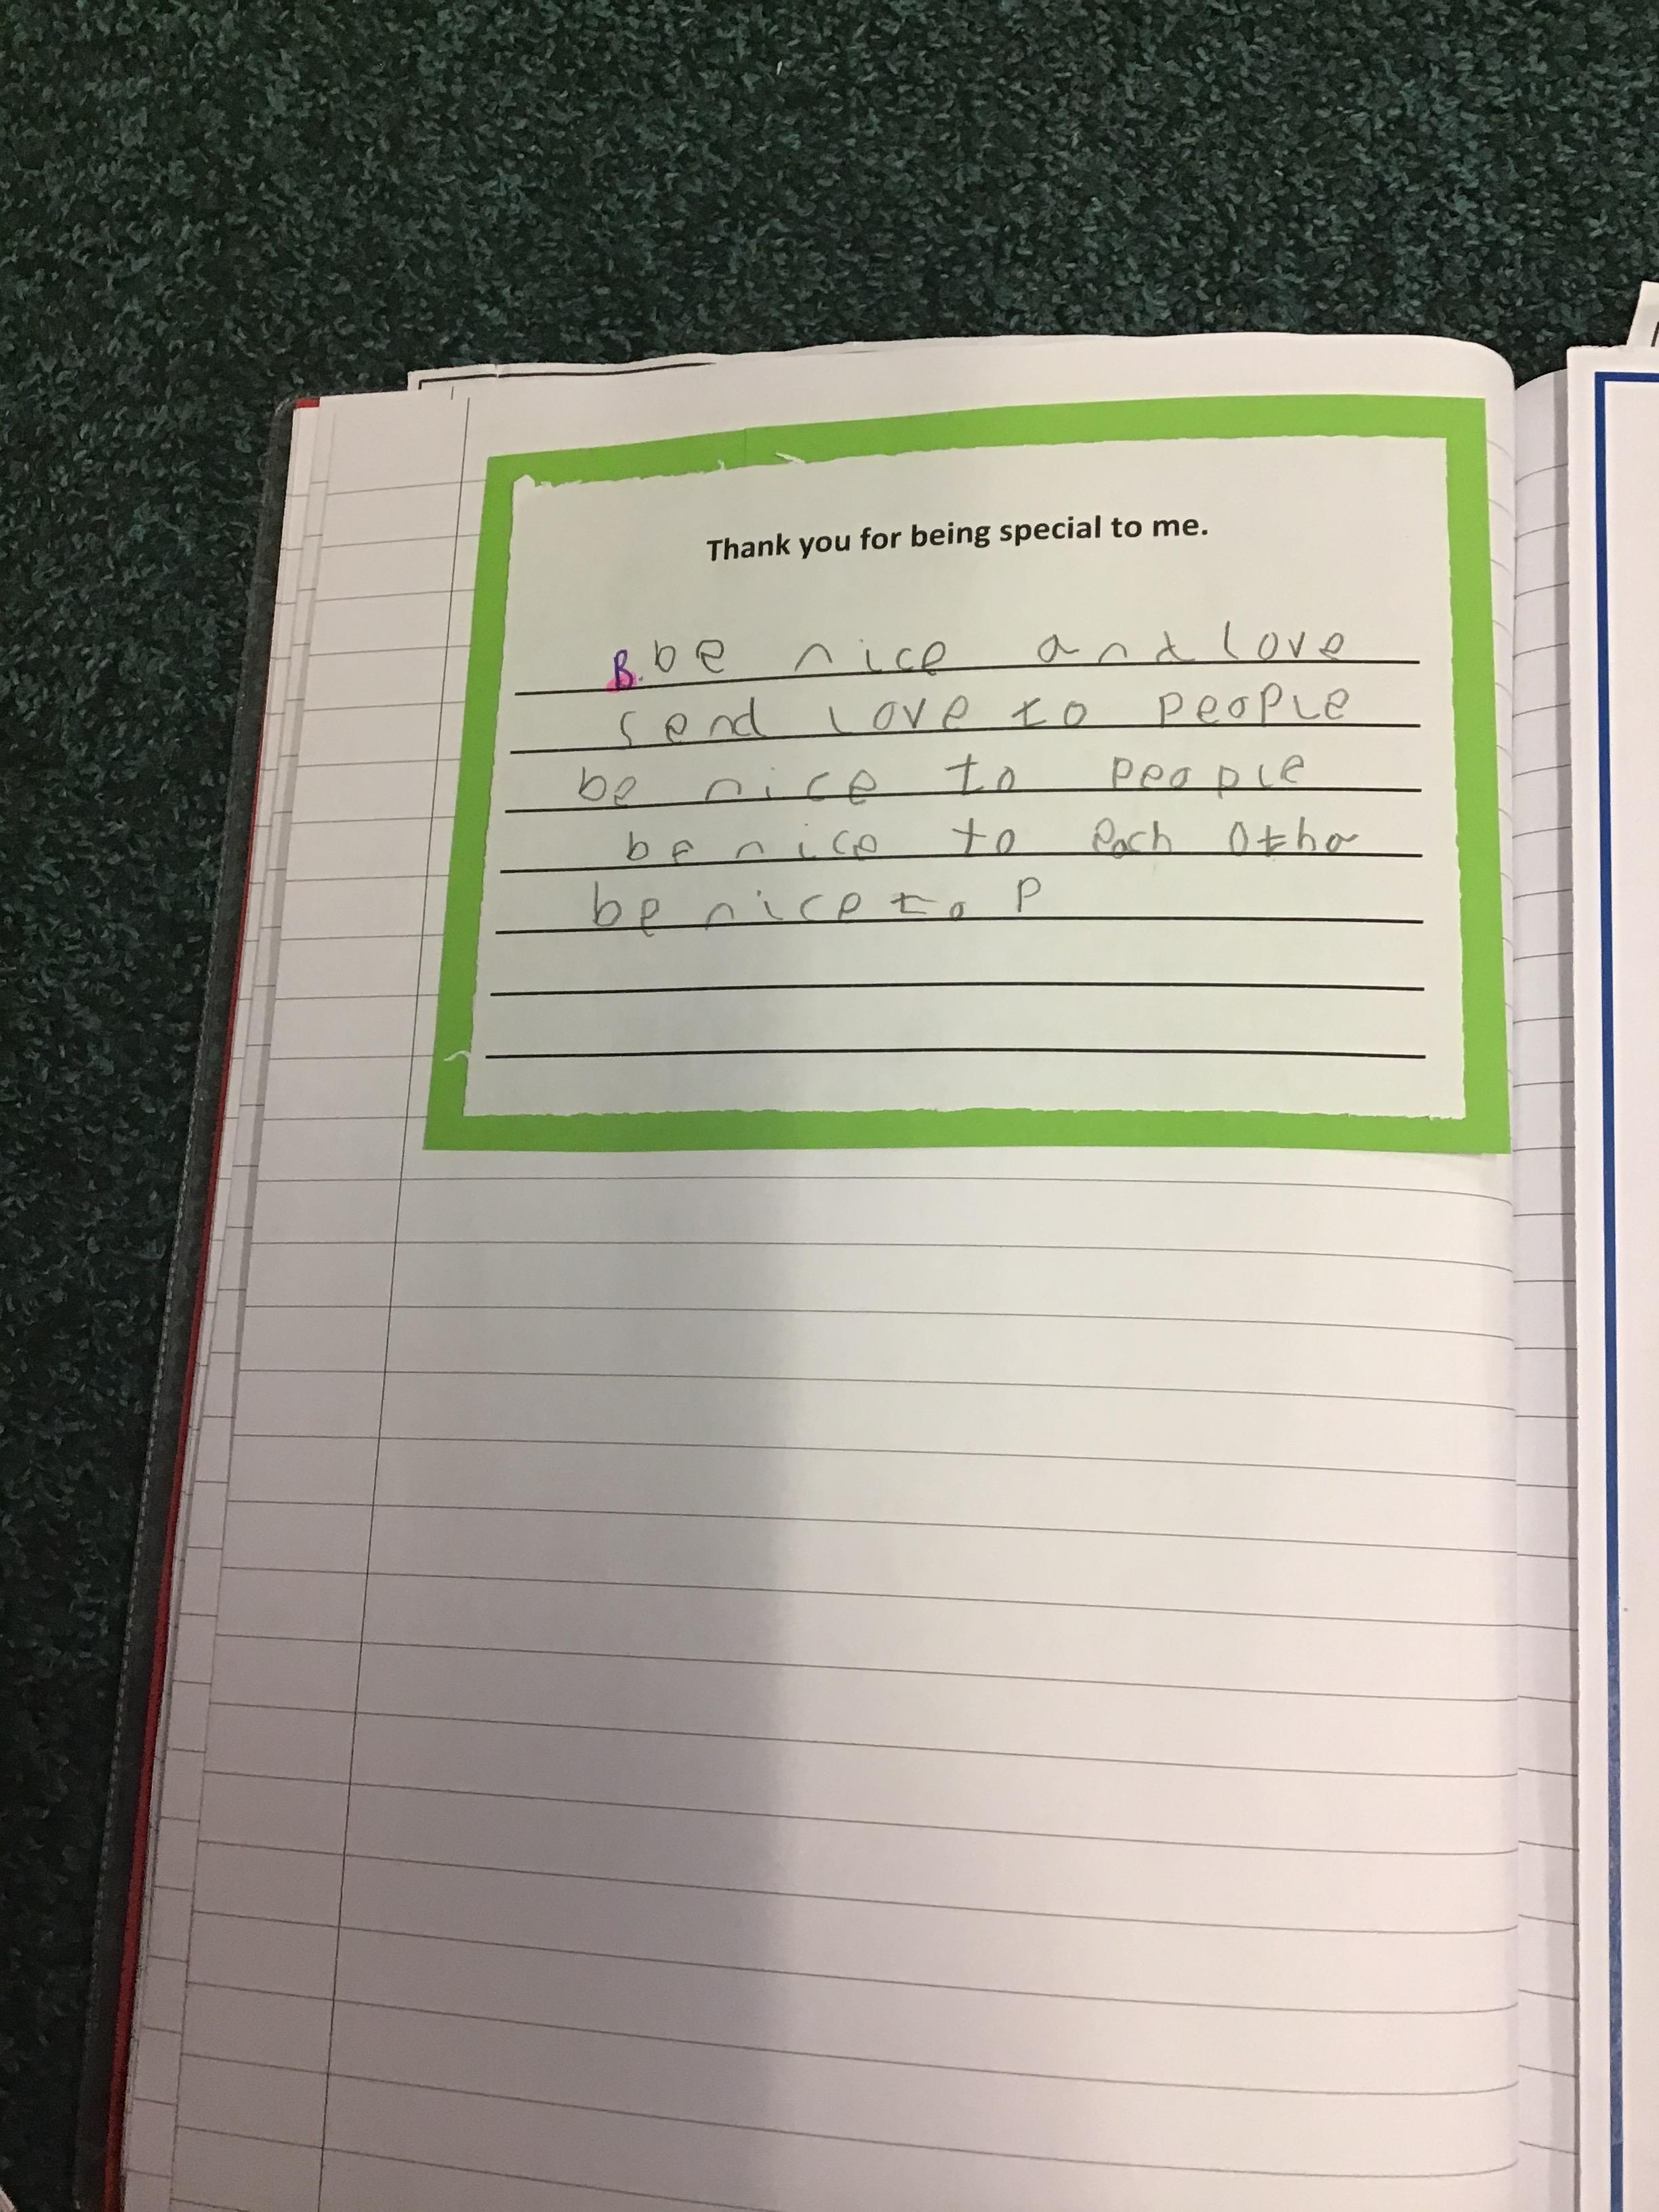 Thank you for being special to me.
B. be nice and love
send love to people
be nice to people
be nice to each otha
be nice to P